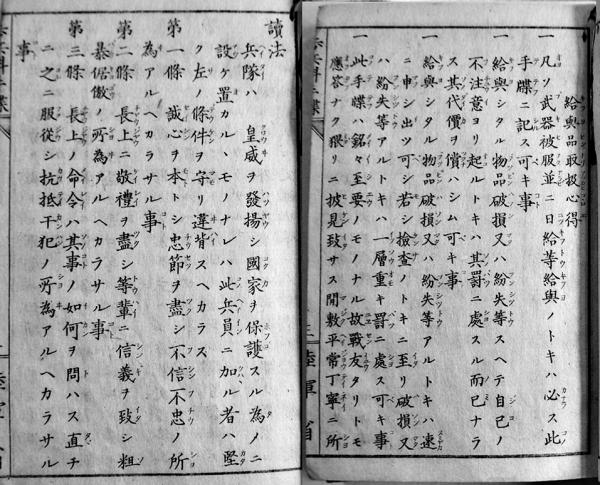 給與品取扱心得
一 凡ソ武器被服並ニ日給等給與ノトキハ必ス此
手牒ニ記ス可キ事
一 給與シタル物品破損又ハ紛失等スヘテ自己ノ
不注意ヨリ起ルトキハ其罰ニ處スル而已ナラ
ス其代價ヲ償ハシム可キ事
一 給與シタル物品破損又ハ紛失等アルトキハ速
ニ申シ出ツ可シ若シ檢査ノトキニ至リ破損又
ハ紛失等アルトキハ一層重キ罰ニ處ス可キ事
一 此手牒ハ銘々至要ノモノナル故戰友タリトモ
應答ナク猥リニ披見致サス間敷平常丁寧ニ所
三 陸軍省
讀法
兵隊ハ 皇威ヲ發揚シ國家ヲ保護スル為メニ
設ケ置カルヽモノナレハ此兵員ニ加ル者ハ堅
ク左ノ條件ヲ守リ違背スヘカラス
第一條 誠心ヲ本トシ忠節ヲ盡シ不信不忠ノ所
為アルヘカラサル事
第二條 長上ニ敬禮ヲ盡シ等輩ニ信義ヲ致シ粗
暴倨傲ノ所為アルヘカラサル事
第三條 長上ノ命令ハ其事ノ如何ヲ問ハス直チ
ニ之ニ服從シ抗抵干犯ノ所為アルヘカラサル
事